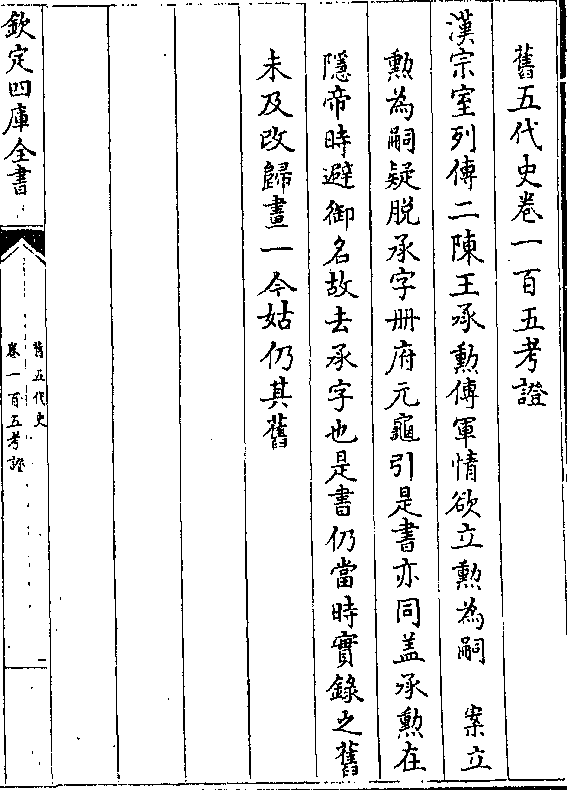 舊五代史卷一百五考證
漢宗室列傳二陳王承勲傳軍情欲立勲為嗣　案立
勲為嗣疑脱承字册府元龜引是書亦同盖承勲在
隱帝時避御名故去承字也是書仍當時實錄之舊
未及改歸畫一今姑仍其舊
欽定四庫全書
舊五代史
卷一百五考證
一